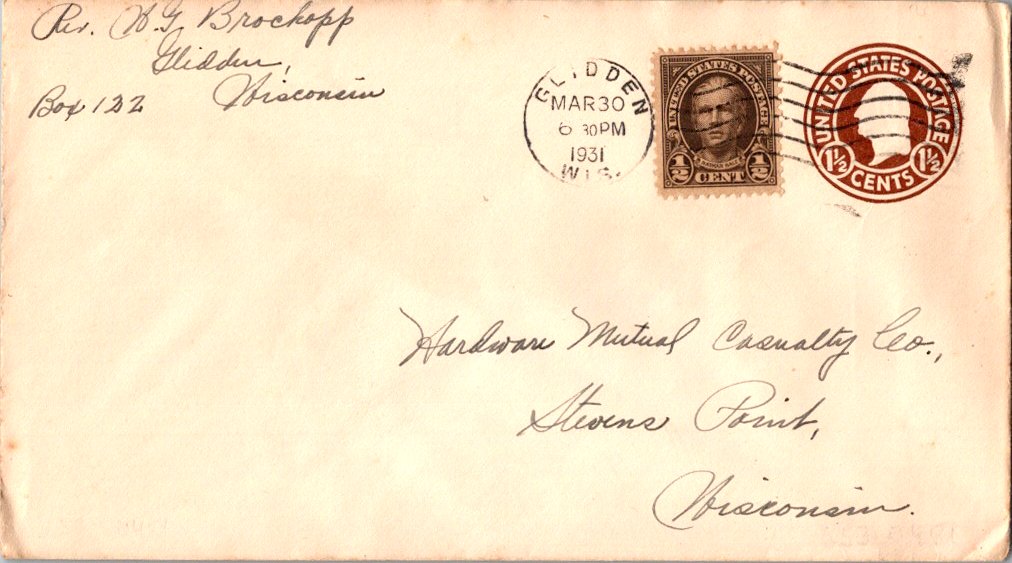 Rev. H.G. Brockopp
Glidden,
Wisconsin
Box 122
GLIDDEN
MAR 30
6 30 PM
1931
WIS.
UNITED STATES POSTAGE
NATHAN HALE
½ CENT ½
UNITED STATES POSTAGE
1½ CENTS 1½
Hardware Mutual Casualty Co.,
Stevens Point,
Wisconsin.